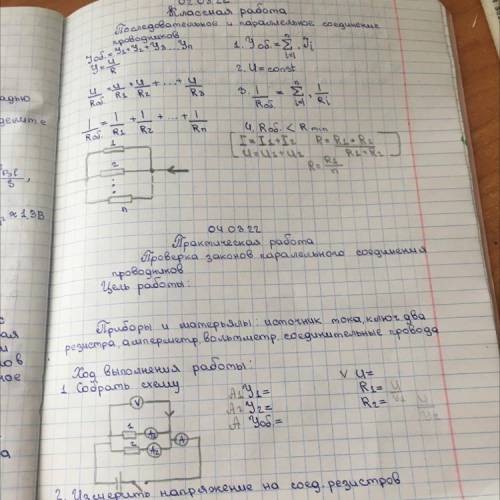 02.03.22
Классная работа
Последовательное и параллельное соединение
проводников
Yоб = Y1 + Y2 + Y3 ... Yn
1. Yоб = Σ Ji
n
i=1
Y = U/R
2. U = const
U/Rоб = U/R1 + U/R2 + ... + U/R3
3. 1/Rоб = Σ 1/Ri
n
i=1
1/Rоб = 1/R1 + 1/R2 + ... + 1/Rn
4. Rоб. < Rmin
I = I1 + I2 R = R1 * R2 / R1 + R2
U = U2 + U2
R = R1/n
1
2
n
04.03.22
Практическая работа
Проверка законов паралельного соединения
проводников
Цель работы:
Приборы и матерьялы: источник тока, ключ два
резистра, амперметр, вольтметр, соединительные провода
Ход выполнения работы:
1. Собрать схему
V
1
A1
2
A2
A
A1 Y1 =
A2 Y2 =
A Yоб =
V U =
R1 = U/Y1
R2 = U/Y2
2. Измерить напряжение на соед. резистров
≈ 1,3В